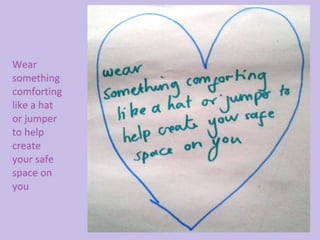 Wear
something
comforting
like a hat
or jumper
to help
create
your safe
space on
you
wear
something comforting
like a hat or jumper to
help create your safe
space on you